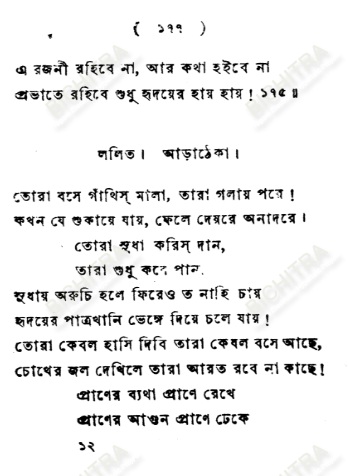 ( ১৭৭ )
এ রজনী রহিবে না, আর কথা হইবে না
প্রভাতে রহিবে শুধু হৃদয়ের হায় হায়! ১৭৫॥
ললিত। আড়াঠেকা।
তোরা বসে গাঁথিস্ মালা, তারা গলায় পরে!
কখন যে শুকায়ে যায়, ফেলে দেয়রে অনাদরে।
তোরা সুধা করিস্ দান,
তারা শুধু করে পান,
সুধায় অরুচি হলে ফিরেও ত নাহি চায়
হৃদয়ের পাত্রখানি ভেঙ্গে দিয়ে চলে যায়!
তোরা কেবল হাসি দিবি তারা কেবল বসে আছে,
চোখের জল দেখিলে তারা আরত রবে না কাছে!
প্রাণের ব্যথা প্রাণে রেখে
প্রাণের আগুন প্রাণে ঢেকে
১২
BICHITRA